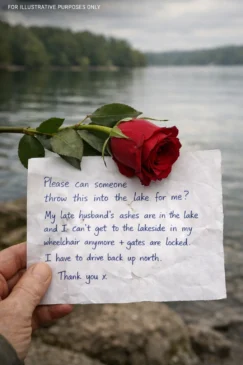 FOR ILLUSTRATIVE PURPOSES ONLY
Please can someone
throw this into the lake for me?
My late husband's ashes are in the lake
and I can't get to the lakeside in my
wheelchair anymore + gates are locked.
I have to drive back up north.
Thank you x